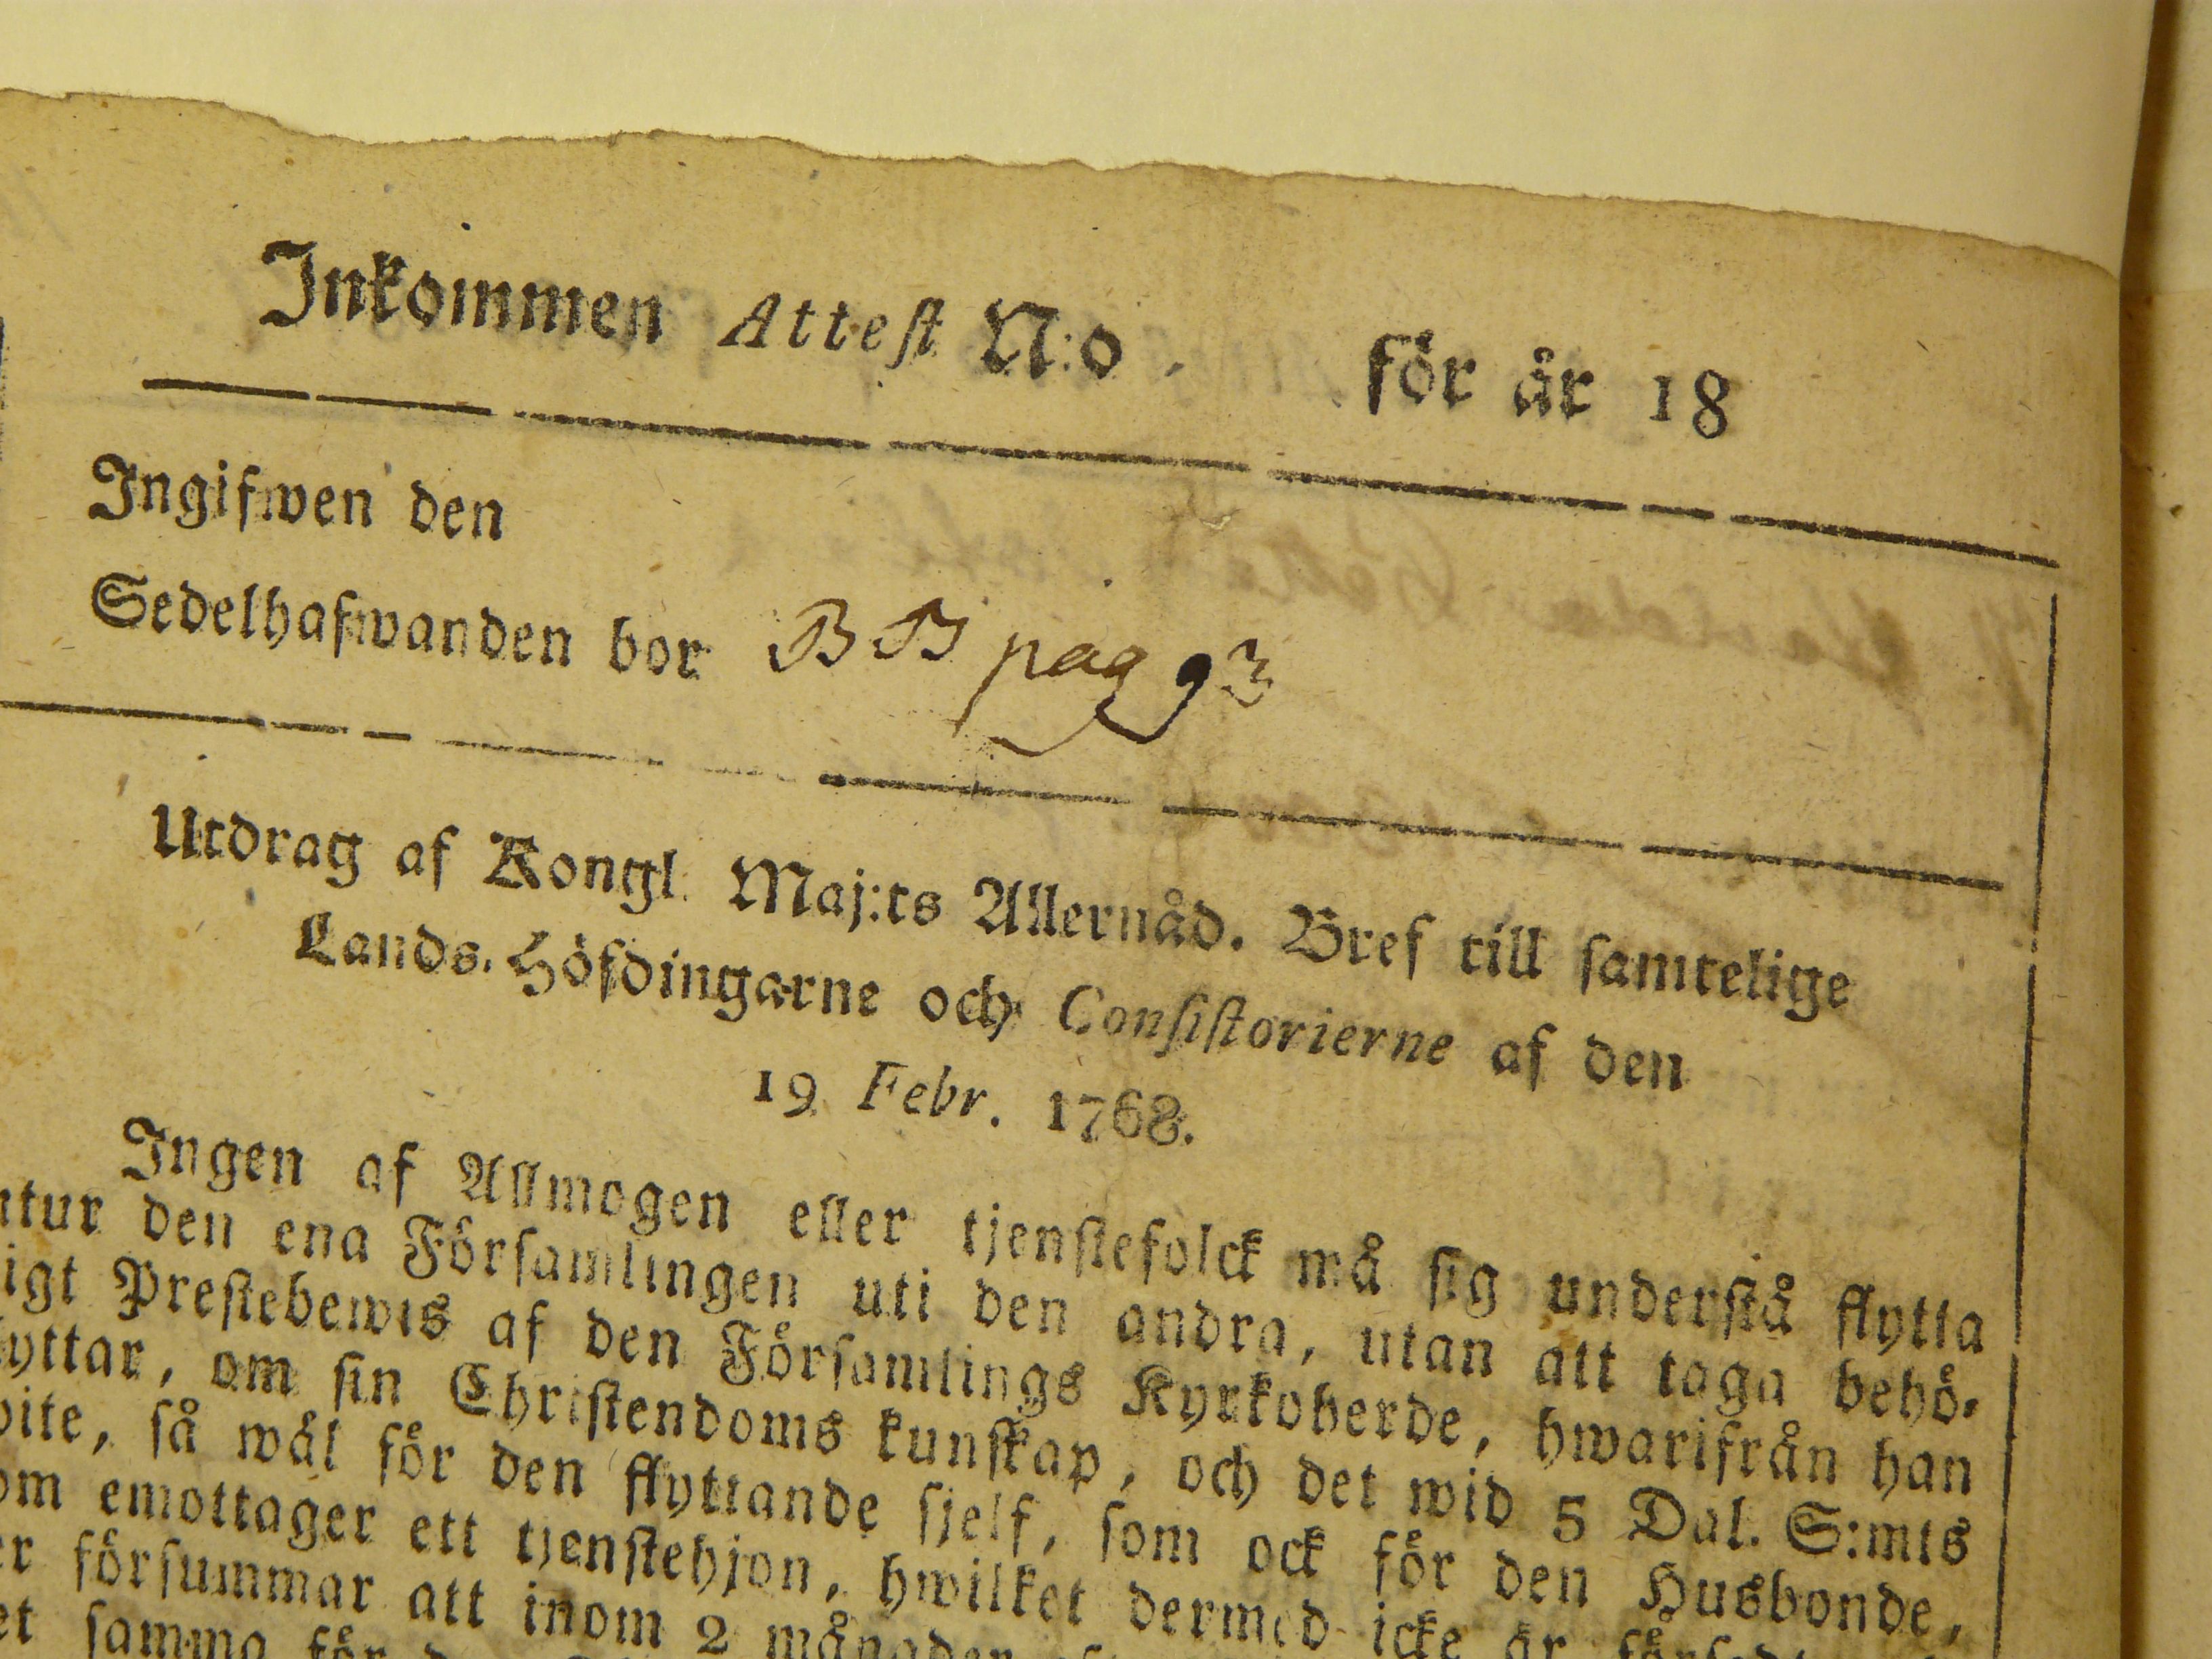 Inkommen Attest N:o för år 18
Ingifwen den
Sedelhafwanden bor BB pag 93
Utdrag af Kongl. Maj:ts Allernåd. Bref till samtelige
Lands-Höfdingarne och Consistorierne af den
19 Febr. 1768.
Ingen af Allmogen eller tjenstefolck må sig understå flytta
utur den ena Församlingen uti den andra, utan att taga behö-
igt Prestebewis af den Församlings Kyrkoherde, hwarifrån han
yttar, om sin Christendoms kunskap, och det wid 5 Dal. S:mts
wite, så wäl för den flyttande sjelf, som ock för den Husbonde,
om emottager ett tjenstehjon, hwilket dermed icke är försedt
er försummar att inom 2 månader
et samma för